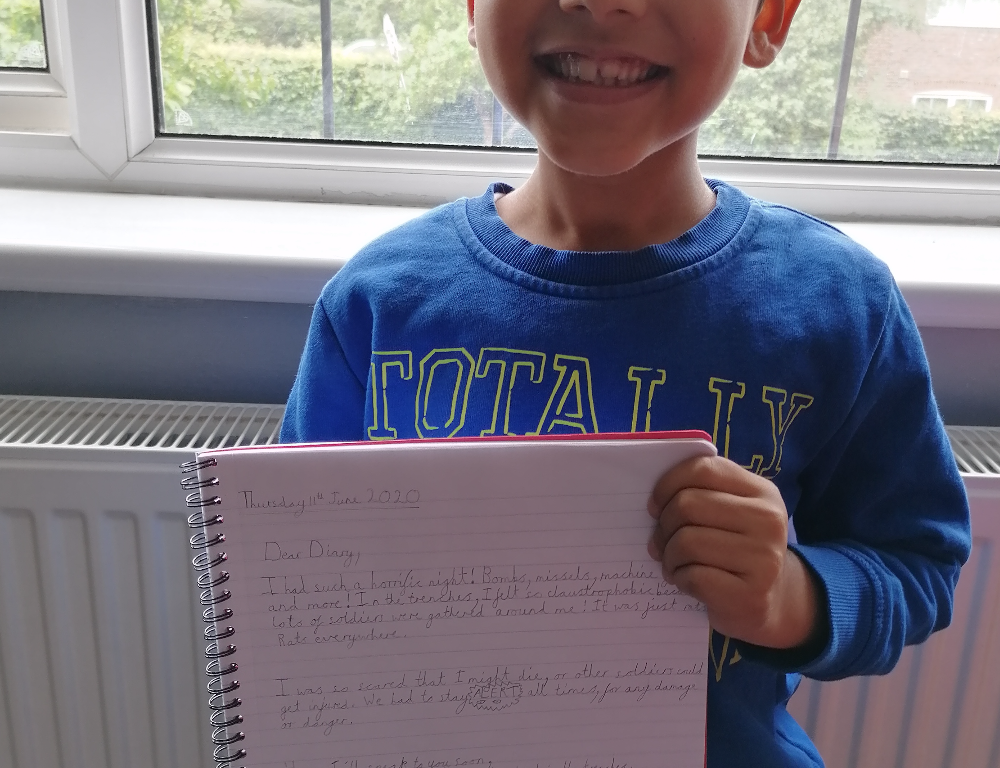 TOTALLY
Thursday 11th June 2020
Dear Diary,
I had such a horrific night! Bombs, missels, machine
and more! In the trenches, I felt so claustrophobic
lots of soldiers were gathered around me! It was just
Rats everywhere.
I was so scared that I might die, or other soldiers could
get injured. We had to stay ALERT all times, for any damage
or danger.
I'll speak to you soon,